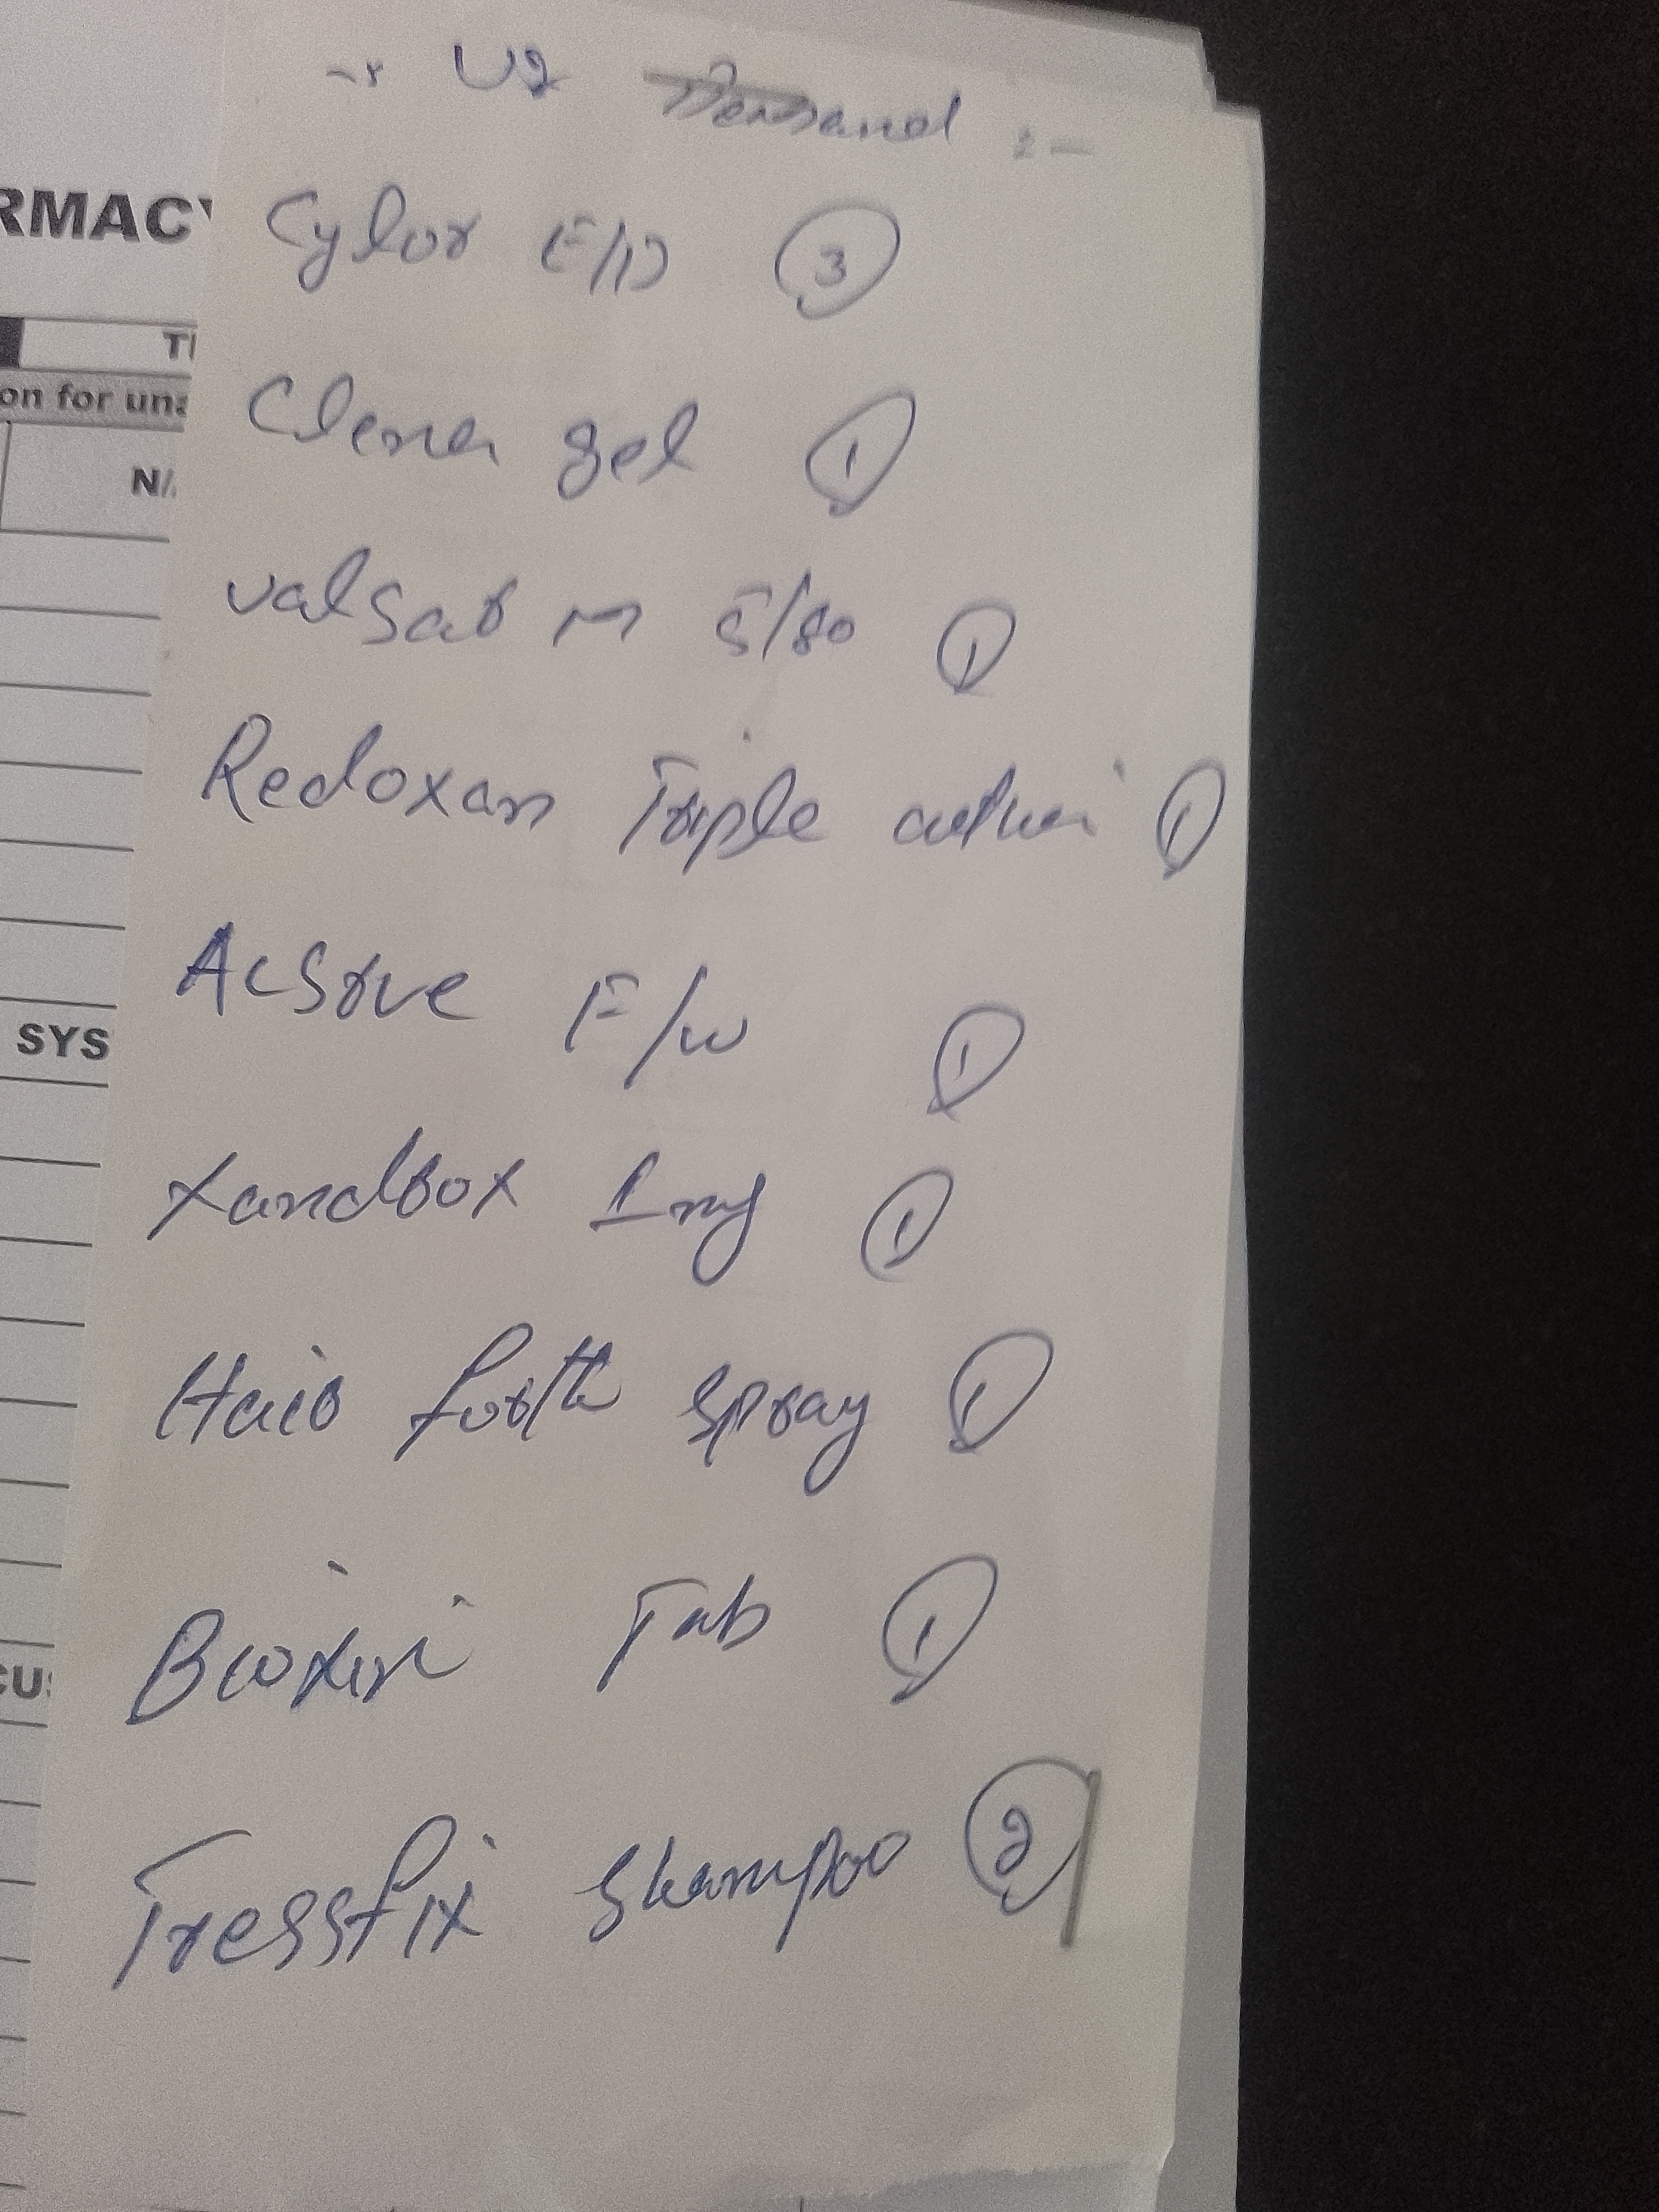 U2 Demand :-
RMACY
Cylor E/D 3
TI
on for una
Clena gel 1
N/
Valsab M 5/80 1
Redoxan Triple action 1
Acsove F/w 1
SYS
Xandbox 1mg 1
Hair forth spray 1
Tab 1
CUS
Tressfix Shampoo 2